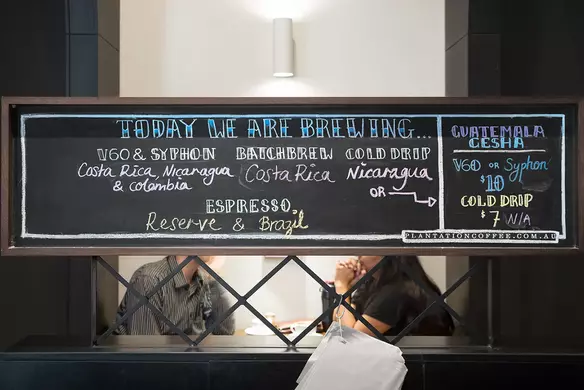 TODAY WE ARE BREWING...
V60 & SYPHON
Costa Rica, Nicaragua
& colombia
BATCHBREW
Costa Rica
COLD DRIP
Nicaragua
OR
ESPRESSO
Reserve & Brazil
GUATEMALA
GESHA
V60 OR Syphon
$10
COLD DRIP
$7 N/A
PLANTATIONCOFFEE.COM.AU